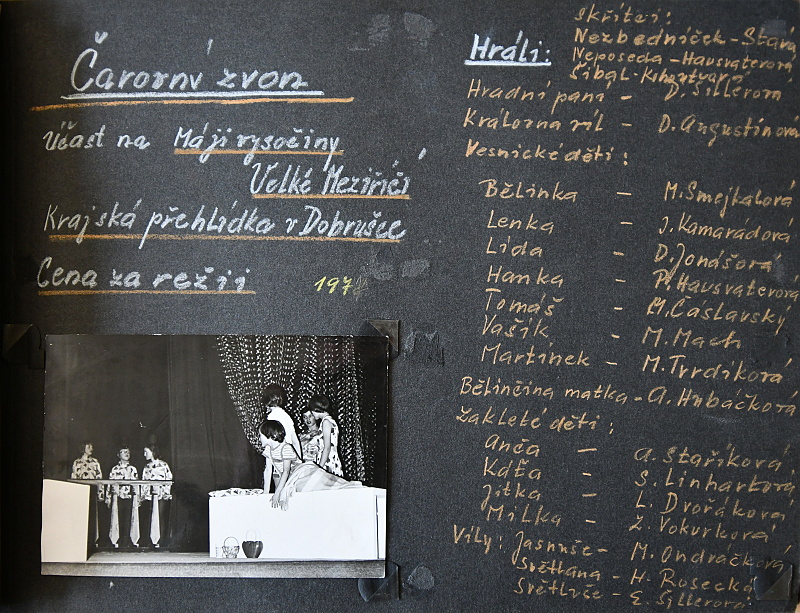 Čarovný zvon
Účast na Máji vysočiny
Velké Meziříčí
Krajská přehlídka v Dobrušce
Cena za režii 197
Hráli:
Skřítci:
Nezbedníček - Stará
Neposeda - Hausvaterová
Šibal -
Hradní paní - D. Šillerová
Královna víl - D. Augustinová
Vesnické děti:
Bělinka - M. Smejkalová
Lenka - J. Kamarádová
Lída - D. Jonášová
Hanka - P. Hausvaterová
Tomáš - M. Čáslavský
Vašík - M. Mach
Martínek - M. Tvrdíková
Bělinčina matka - A. Hubáčková
Zakleté děti:
Anča - A. Staříková
Káťa - S. Linhartová
Jitka - L. Dvořáková
Milka - Z. Vokurková
Víly: Jasnuše - M. Ondračková
Světlana - H. Rosecká
Světluše - E. Šillerová